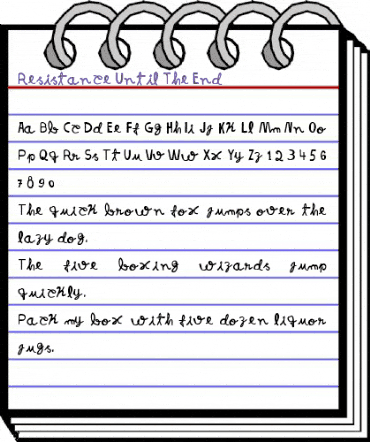 Resistance Until The End
Aa Bb Cc Dd Ee Ff Gg Hh Ii Jj Kk Ll Mm Nn Oo
Pp Qq Rr Ss Tt Uu Vv Ww Xx Yy Zz 1 2 3 4 5 6
7 8 9 0
The quick brown fox jumps over the
lazy dog.
The five boxing wizards jump
quickly.
Pack my box with five dozen liquor
jugs.